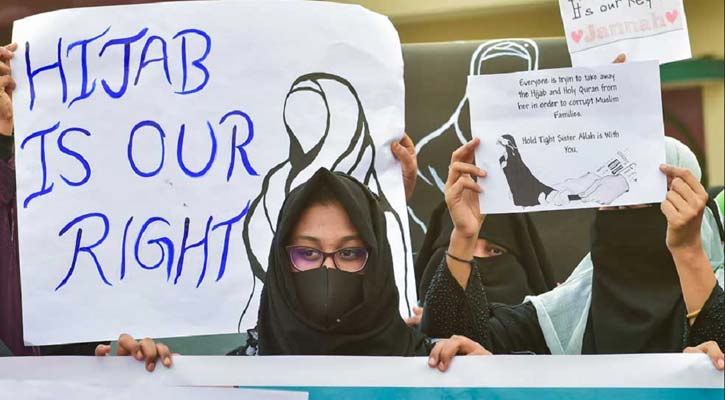 HIJAB
IS OUR
RIGHT
It's our Key
Jannah
Everyone is tryin to take away
the Hijab and Holy Quran from
her in order to corrupt Muslim
Families.
Hold Tight Sister Allah is With
You.